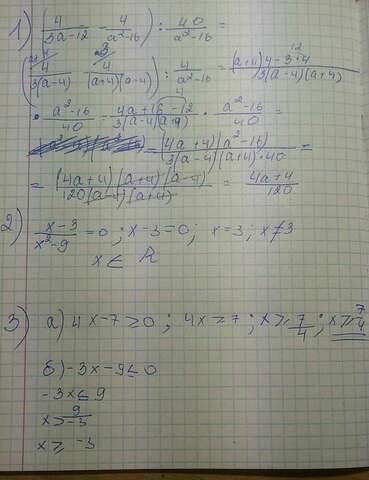 1) (4/3a-12 - 4/a²-16) : 40/a²-16 =
(4/3(a-4) - 4/(a+4)(a-4)) : 4/a²-16 = (a+4)4-3·4/3(a-4)(a+4)
· a²-16/40 = 4a+16-12/3(a-4)(a+4) · a²-16/40 =
= (4a+4)(a²-16)/3(a-4)(a+4)·40 =
= (4a+4)(a+4)(a-4)/120(a-4)(a+4) = 4a+4/120
2) x-3/x²-9 = 0 ; x-3=0; x=3; x≠3
x ∈ R
3) а) 4x-7≥0 ; 4x≥7 ; x≥7/4 ; x≥7/4
б) -3x-9≤0
-3x≤9
x≥9/-3
x≥ -3